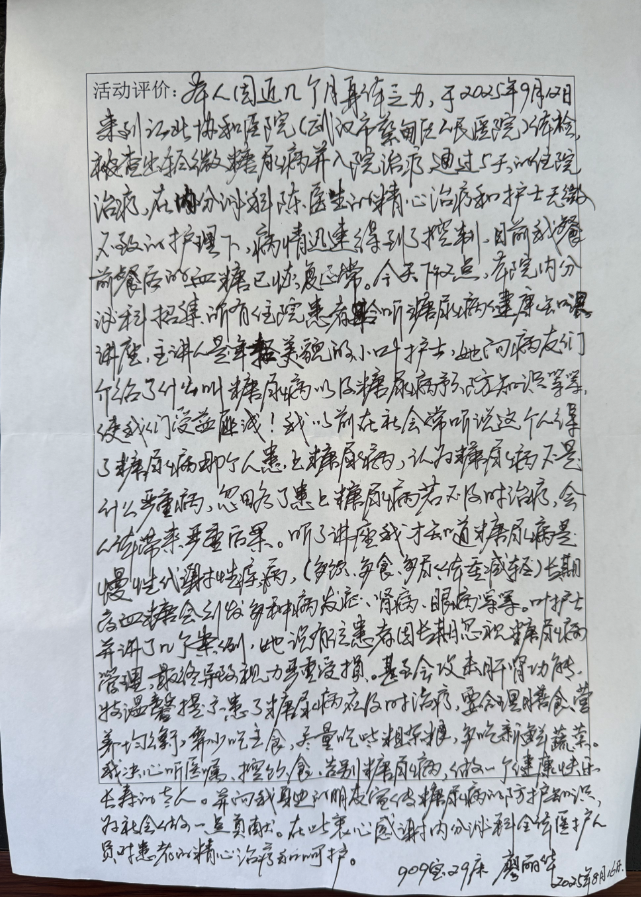 活动评价：本人因近几个月身体乏力，于2025年9月12日
来到江北协和医院（武汉市蔡甸区人民医院）体检，
被查出轻微糖尿病并入院治疗，通过5天的住院
治疗，在内分泌科陈医生的精心治疗和护士无微
不致的护理下，病情迅速得到了控制，目前我餐
前餐后的血糖已恢复正常。今天下午2点，在院内分
泌科招集所有住院患者聆听糖尿病健康知识
讲座，主讲人是年轻美貌的小叶护士，她向病友们
介绍了什么叫糖尿病以及糖尿病预防知识等等，
使我们受益匪浅！我以前在社会常听说这个人得
了糖尿病那个人患上糖尿病，认为糖尿病不是
什么严重病，忽略了患上糖尿病若不及时治疗，会
人体带来严重后果。听了讲座我才知道糖尿病是
慢性代谢性疾病，（多饮、多食、多尿、体重减轻）长期
高血糖会引发多种病发症、肾病、眼病等等。叶护士
并讲了几个案例，她说有位患者因长期忽视糖尿病
管理，最终导致视力严重受损。甚至会攻击肝肾功能，
特温馨提示：患了糖尿病应及时治疗，要合理膳食、营
养均衡，少吃主食，尽量吃些粗杂粮，多吃新鲜蔬菜。
我决心听医嘱、控饮食、告别糖尿病，做一个健康快乐
长寿的老人。并向我身边的朋友宣传糖尿病的防护知识，
为社会做一点贡献。在此衷心感谢内分泌科全体医护人
员对患者的精心治疗和呵护。
909室.29床 廖丽华
2025年8月16日.